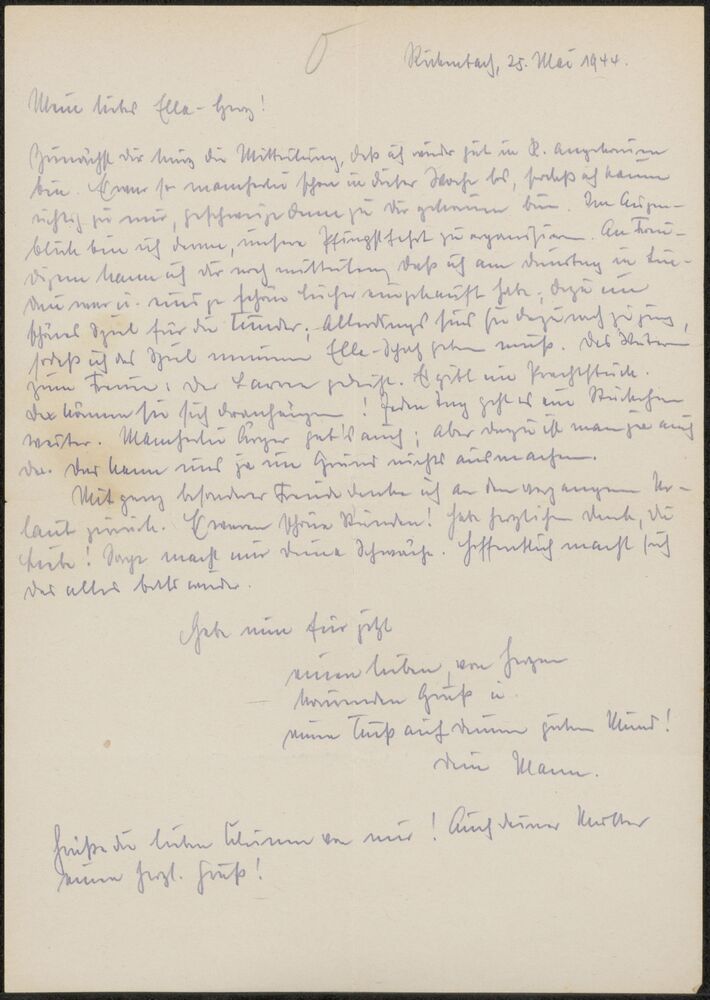 Rickenbach, 25. Mai 1944.
Mein liebes Ella-Herz!
Zunächst dir kurz die Mitteilung, daß ich wieder gut in R. angekommen
bin. Es war so mancherlei schon in dieser Woche los, sodaß ich kaum
richtig zu mir, geschweige denn zu dir gekommen bin. Im Augen-
blick bin ich daran, unsere Pfingstfahrt zu organisieren. An Freu-
digem kann ich dir noch mitteilen, daß ich am Dienstag in Lin-
dau war u. einige schöne Bücher eingekauft habe; dazu ein
schönes Spiel für die Kinder; allerdings sind sie dazu noch zu jung,
sodaß ich das Spiel meinem Ella-Schatz geben muß. Des Weiteren
zum Freuen: der Karren gedeiht. Es gibt ein Prachtstück.
Da können sie sich dranhängen! Jeden Tag geht es ein Stückchen
weiter. Mancherlei Ärger gab's auch; aber dazu ist man ja auch
da. Das kann uns ja im Grund nichts ausmachen.
Mit ganz besonderer Freude denke ich an den vergangenen Ur-
laub zurück. Es waren schöne Stunden! Habe herzlichen Dank, du
Liebe! Sorge macht mir deine Schwäche. Hoffentlich macht sich
das alles bald wieder.
Habe nun für jetzt
einen lieben, von Herzen
kommenden Gruß u.
einen Kuß auf deinen guten Mund!
Dein Mann.
Grüße die lieben Kleinen von mir! Auch deiner Mutter
einen herzl. Gruß!